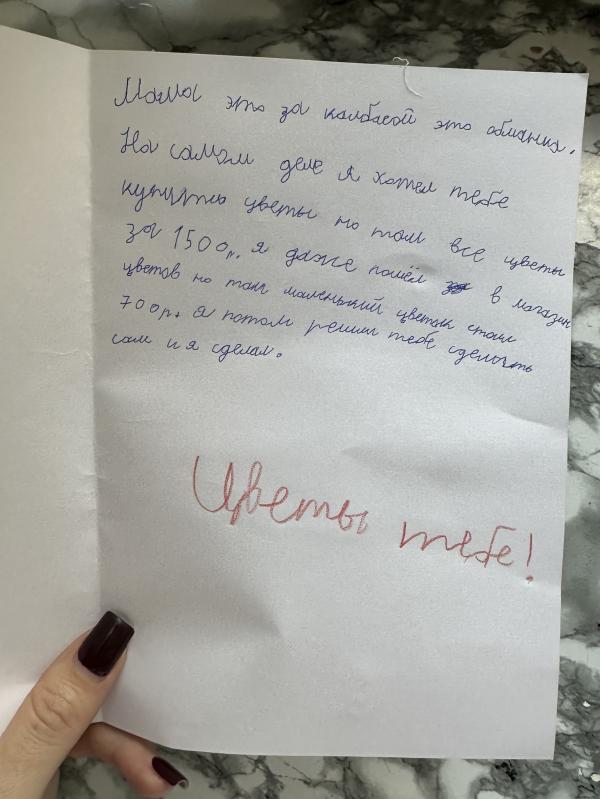 Мама это за калбасой это обманка.
На самам деле я хотел тебе
купить цветы но там все цветы
за 1500р. я даже пошёл в магазин
цветов но там маленький цветок стоил
700р. А потом решил тебе сделать
сам и я сделал.
Цветы тебе!